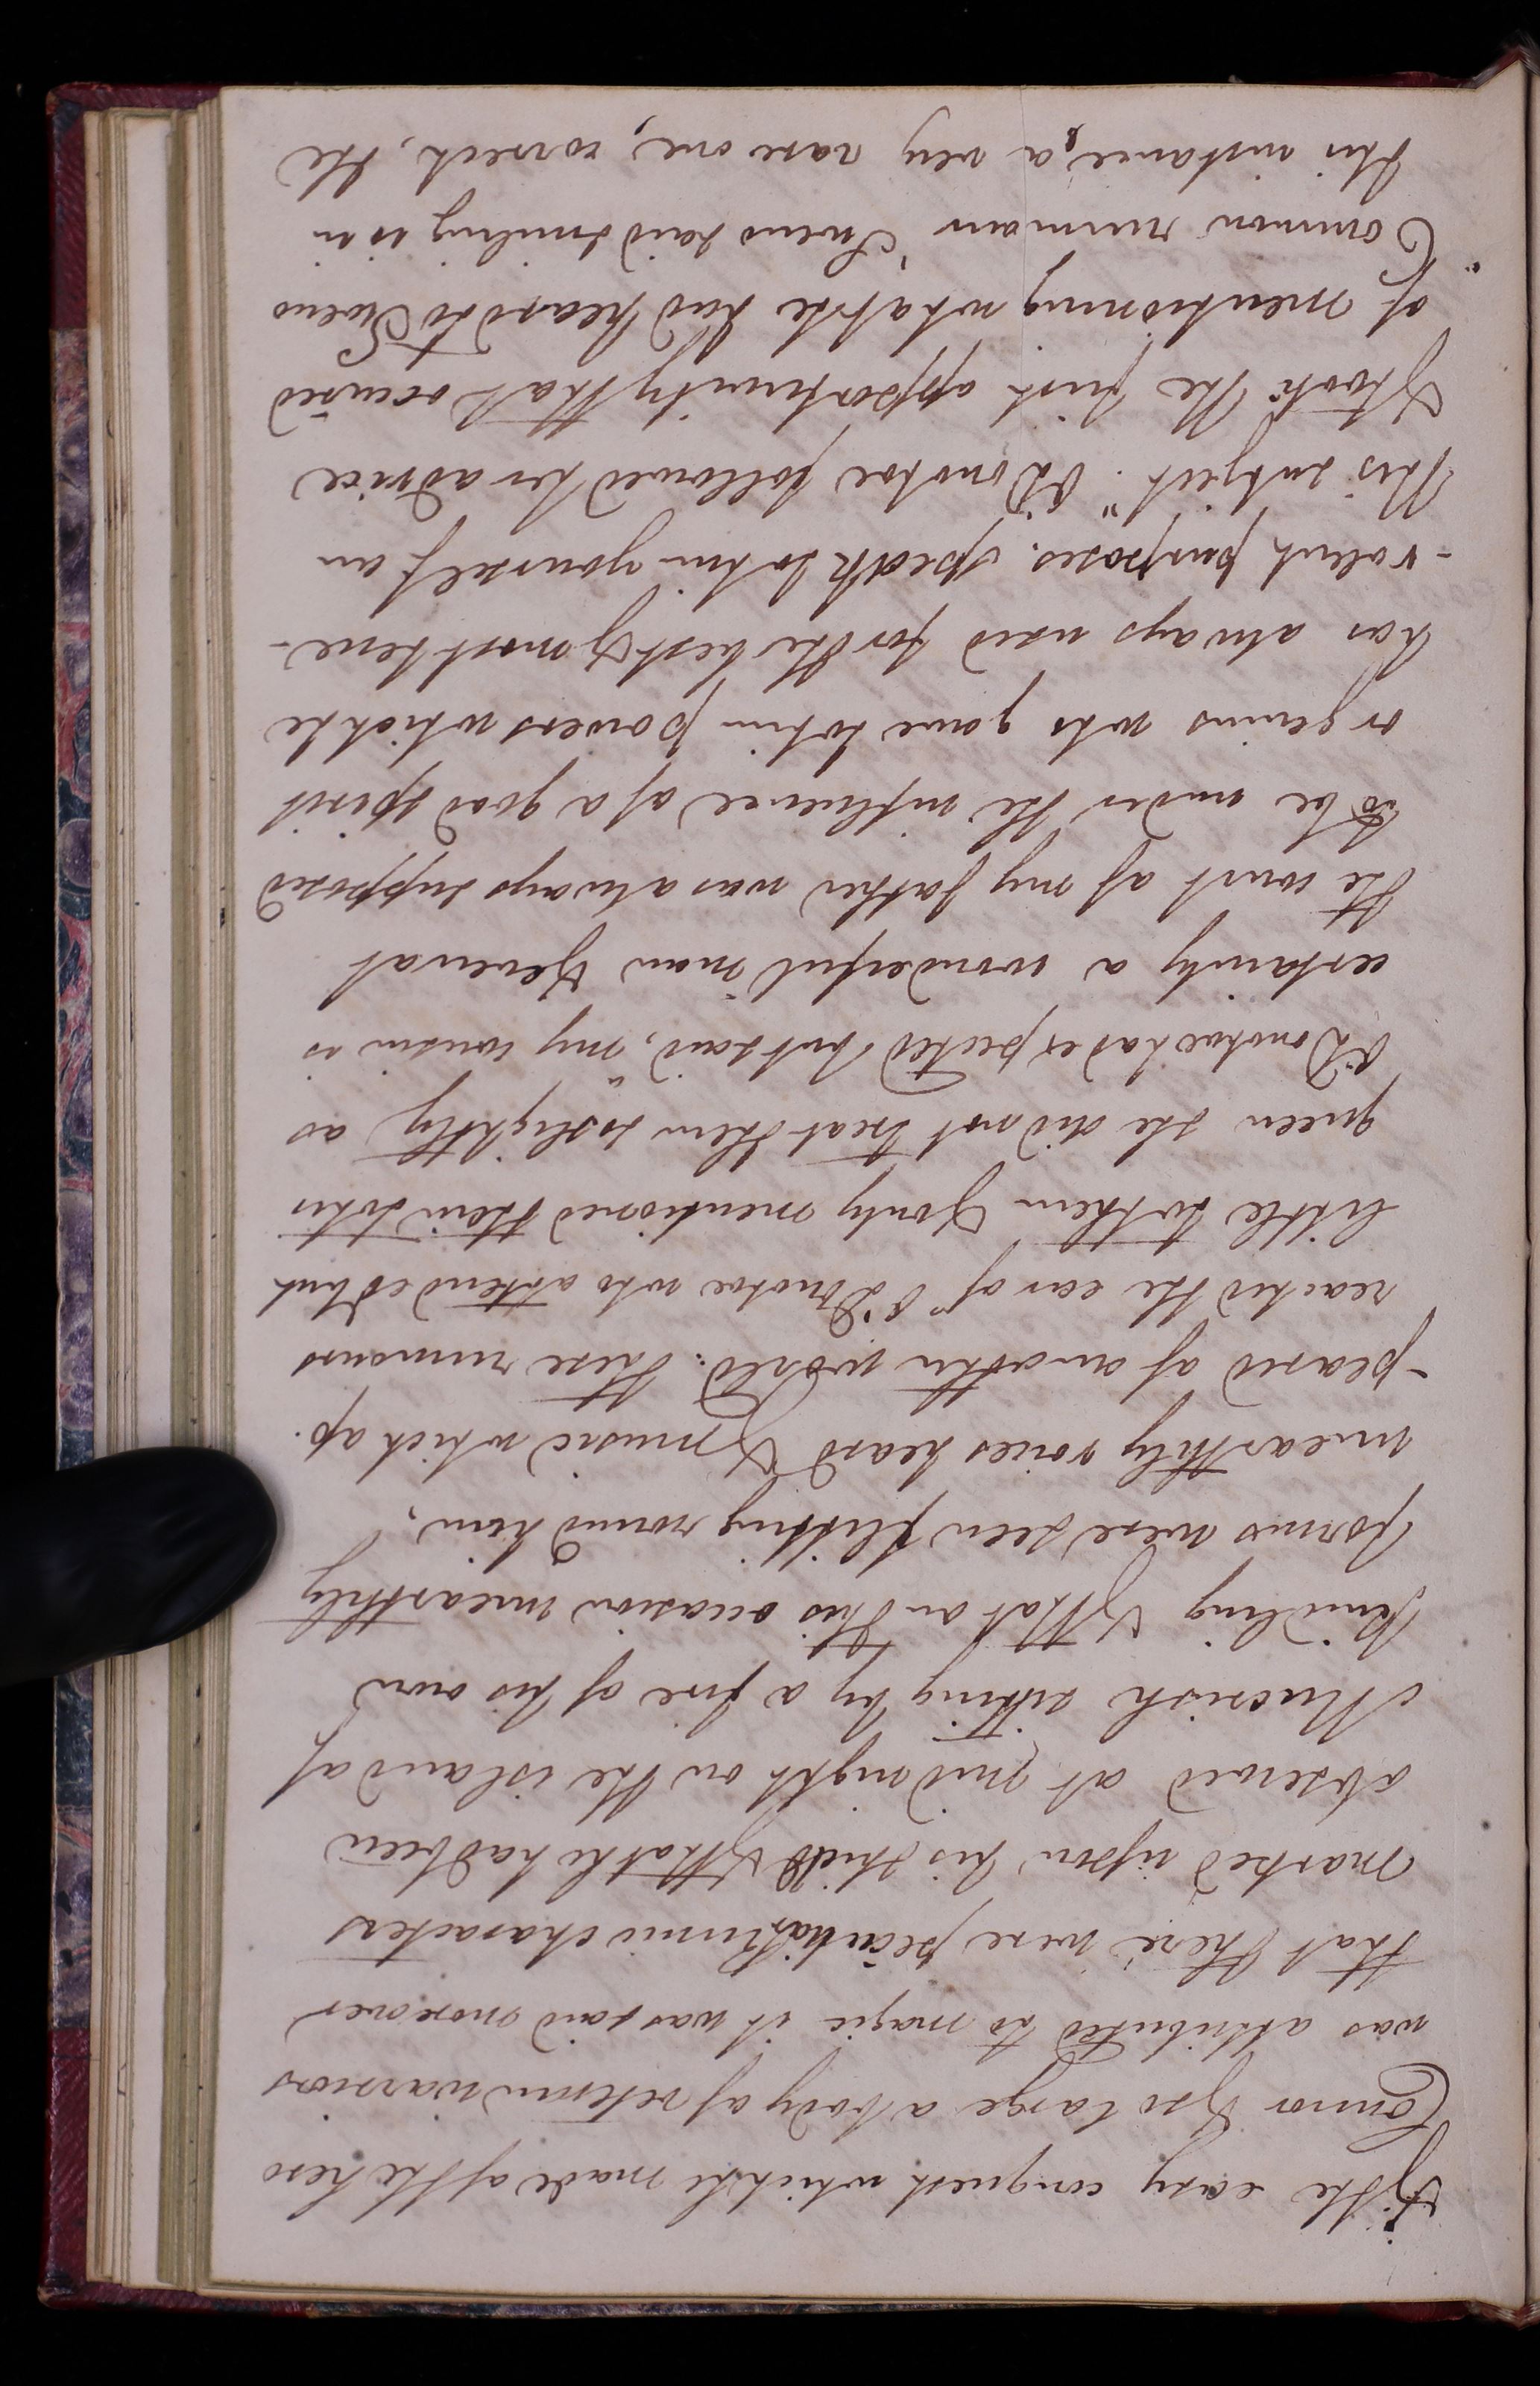 & the easy conquest which he made of the hero
Connor & so large a body of veteran warriors
was attributed to magic it was said moreover
that there were peculiar Runic characters
marked upon his shield & that he had been
observed at midnight on the island of
Mucrish sitting by a fire of his own
kindling & that on this occasion unearthly
forms were seen flitting round him,
unearthly voices heard & music which ap-
-peared of another world: these rumours
reached the ear of O'Donohoe who attended but
little to them & only mentioned them to his
queen she did not treat them so slightly as
O'Donohoe had expected but said, "my cousin is
certainly a wonderful man & even at
the court of my father was always supposed
to be under the influence of a good spirit
or genius who gave to him powers which he
has always used for the best & most bene-
-volent purposes. Speak to him yourself on
this subject." O'Donohoe followed her advice
& took the first opportunity that occured
of mentioning what he had heard to Sweno
"Common rumour" Sweno said smiling "is in
this instance, a very rare one, correct, the